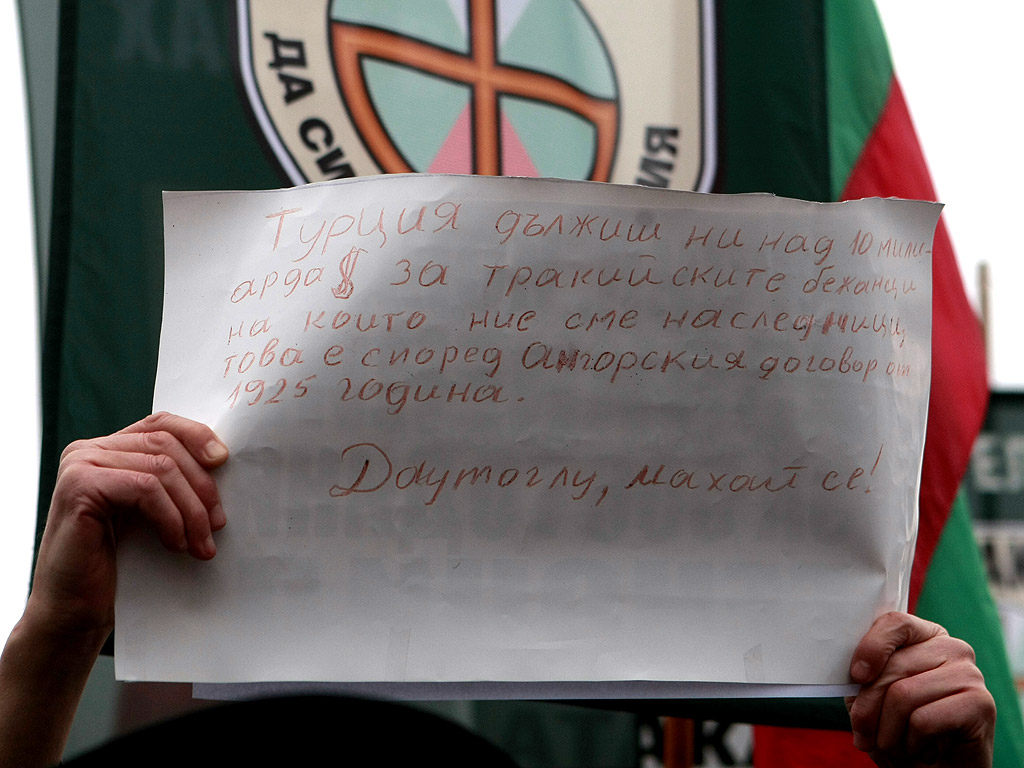 ДА СИ
Турция дължиш ни над 10 мили-
арда $ за тракийските бежанци
на които ние сме наследници,
това е според Ангорския договор от
1925 година.
Даутоглу, махай се!